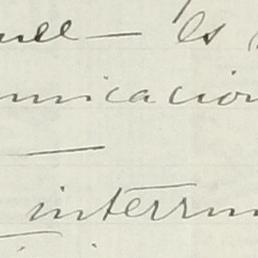 ull — Es
unicacion
—
interrum